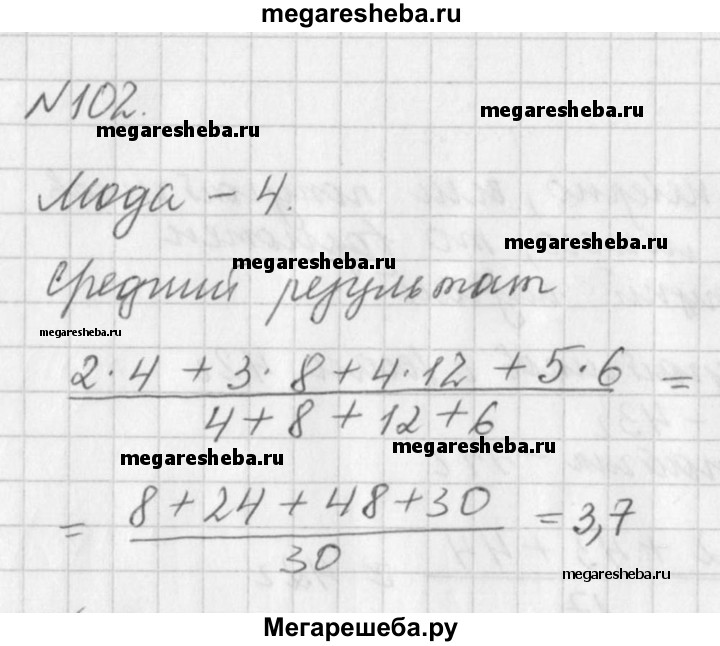 megaresheba.ru
№102.
megaresheba.ru
megaresheba.ru
Мода – 4.
megaresheba.ru
megaresheba.ru
Средний результат
megaresheba.ru
2·4 + 3·8 + 4·12 + 5·6 =
4 + 8 + 12 + 6
megaresheba.ru
megaresheba.ru
= 8 + 24 + 48 + 30 = 3,7
30
megaresheba.ru
Мегарешеба.ру